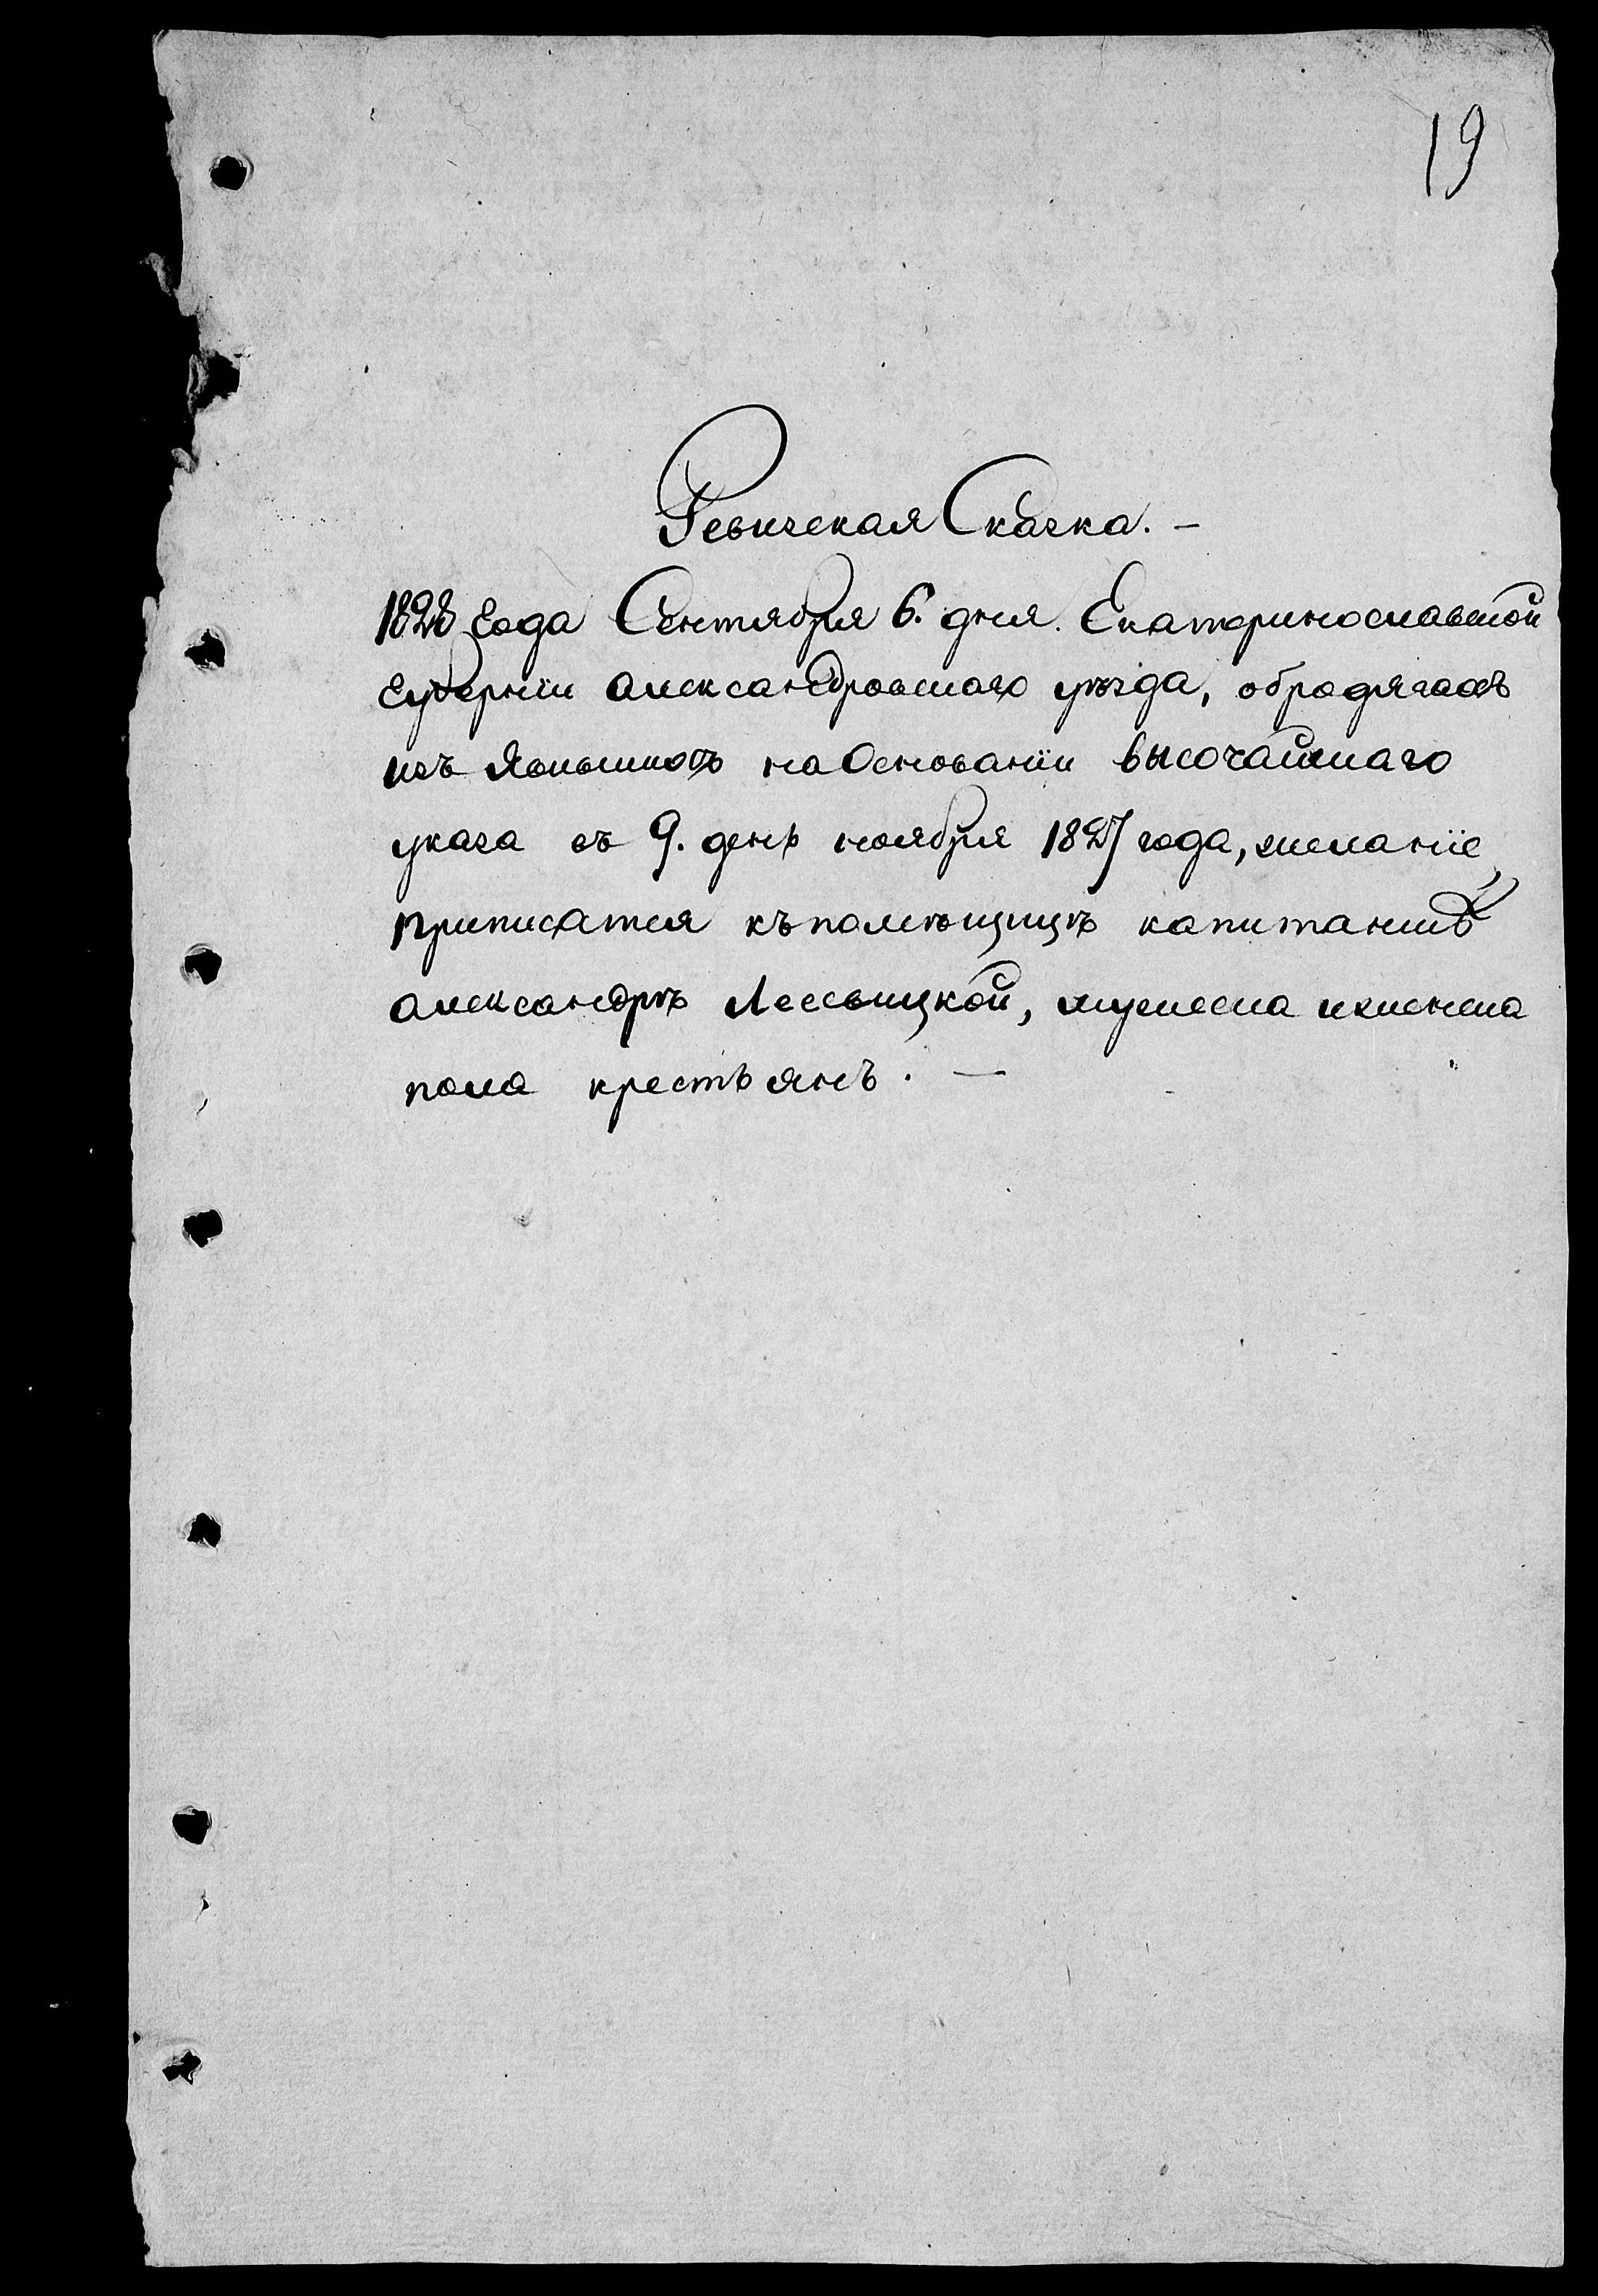 19
Ревизская Сказка. –
1828 года Сентября 6. дня. Екатеринославской
Губернии Александровского уѣзда, о бродягахъ
изъ явившихъ на Основаніи высочайшаго
указа въ 9. день ноября 1827 года, желаніе
приписатся къ помѣщицѣ капитаншѣ
Александрѣ Лессвицкой, мужеска и женска
пола крестьянъ. —